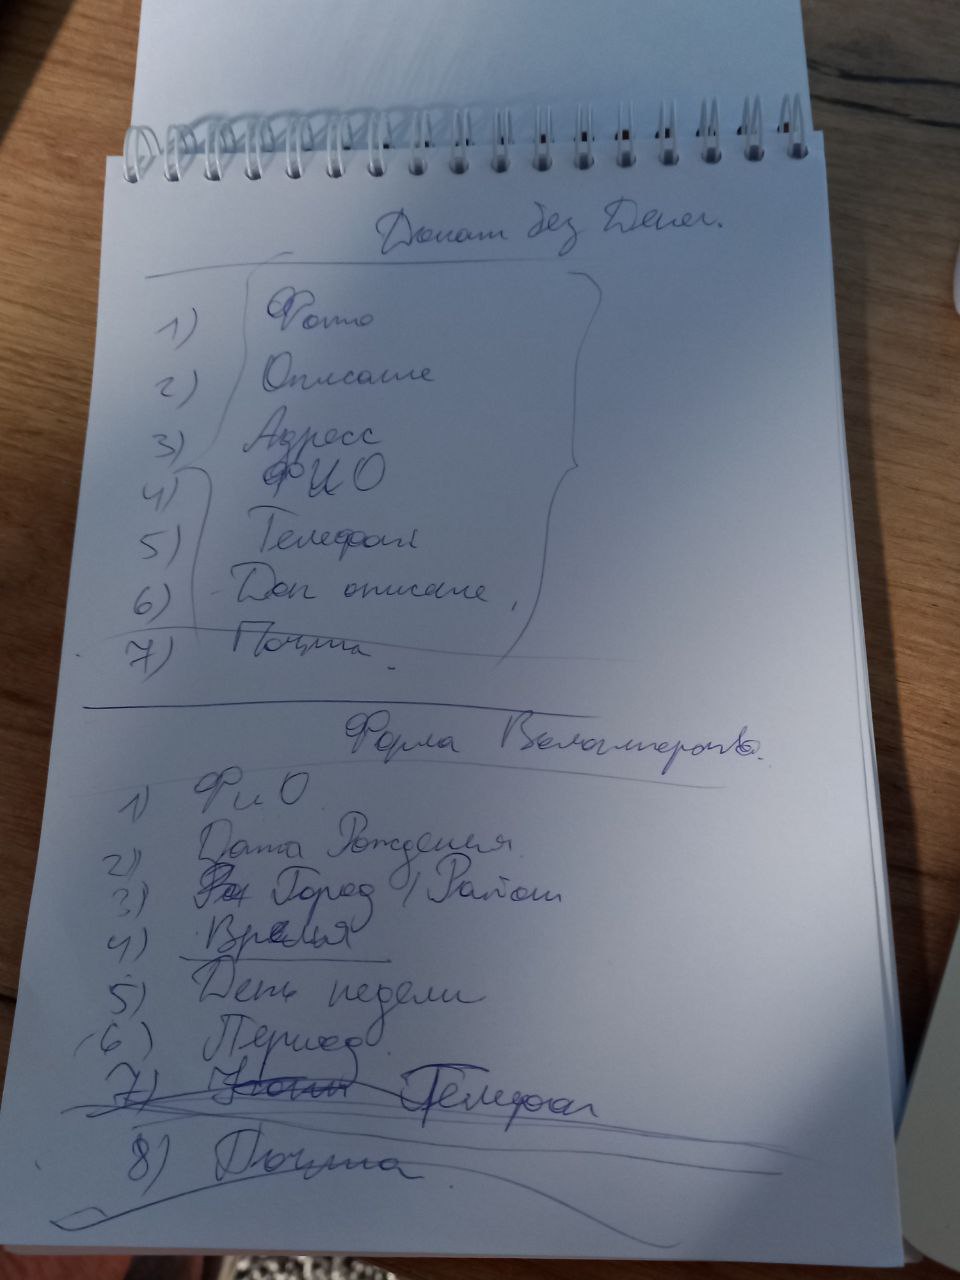 Донат без Денег.
1) Фото
2) Описание
3) Адресс
4) ФИО
5) Телефон
6) Доп описание,
7) Почта.
Форма Волонтеров.
1) ФиО
2) Дата Рождения
3) Город / Район
4) Время
5) День недели
6) Период
7) Телефон
8) Почта.